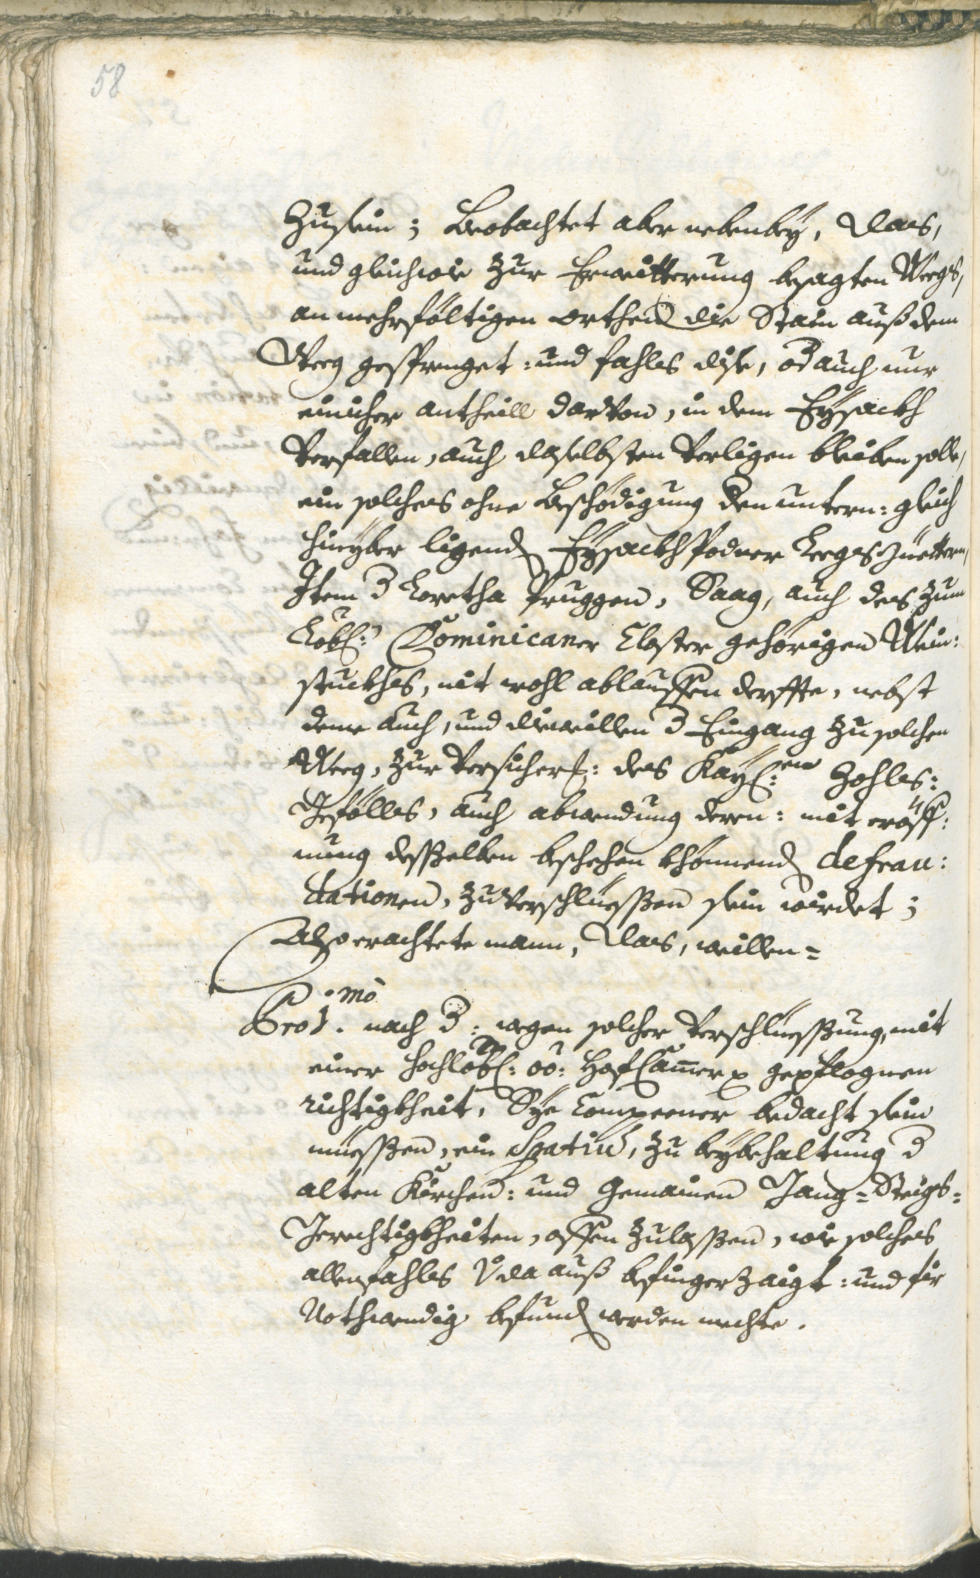 58
Zusein; Beobachtet aber nebenbey, Das,
und gleichwie zur Erweitterung besagten Weegs,
an mehrföltigen orthen die Stain auß dem
Weeg gesprenget: und fahls dise, od auch nur
einicher antheill darvon, in dem Eysackh
Verfallen, auch daselbsten Verligen bleiben solle,
ein solches ohne Beschödigung den untern: gleich
hinyber ligend Eysackh Podner Leegs
Item d Loretha Pruggen, Saag, auch des zum
Löbl: Dominicaner Closter gehörigen Wein:
stuckhs, nit wohl ablauffen derffte, nebst
deme auch, und dieweillen d Eingang zu solchen
Weeg, zur Versicher: des Kay:en Zohls:
Gefölls, auch abwendung deren: mit eröff:
nung desselben beschehen khönnend defrau:
dationen, zu Verschlüessen sein wirdet;
Also erachtete mann, Das, weillen=
Pro 1.mo nach d: wegen solcher Verschlüessung, mit
einer Hochlöbl: oö: HofCammer gepflognen
richtigkheit, Sye Comparener bedacht sein
müessen, ein Spatiu, zu beybehaltung d
alten Kirchen: und Gemainen Gang= Steigs=
Gerechtigkheiten, offen zulassen, wie solches
allenfahls auß befinger zaigt: und fir
Nothwendig befund werden mechte.